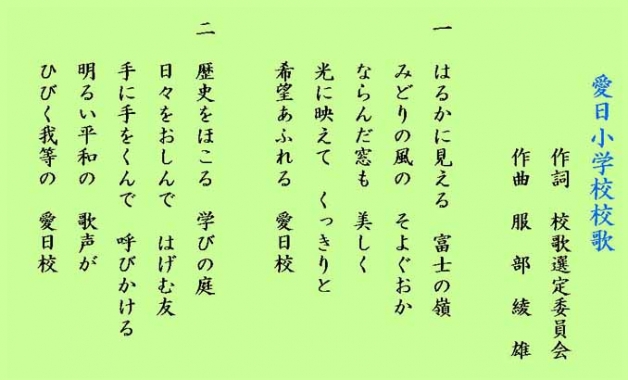 愛日小学校校歌
作詞 校歌選定委員会
作曲 服部綾雄
一 はるかに見える 富士の嶺
みどりの風の そよぐおか
ならんだ窓も 美しく
光に映えて くっきりと
希望あふれる 愛日校
二 歴史をほこる 学びの庭
日々をおしんで はげむ友
手に手をくんで 呼びかける
明るい平和の 歌声が
ひびく我等の 愛日校